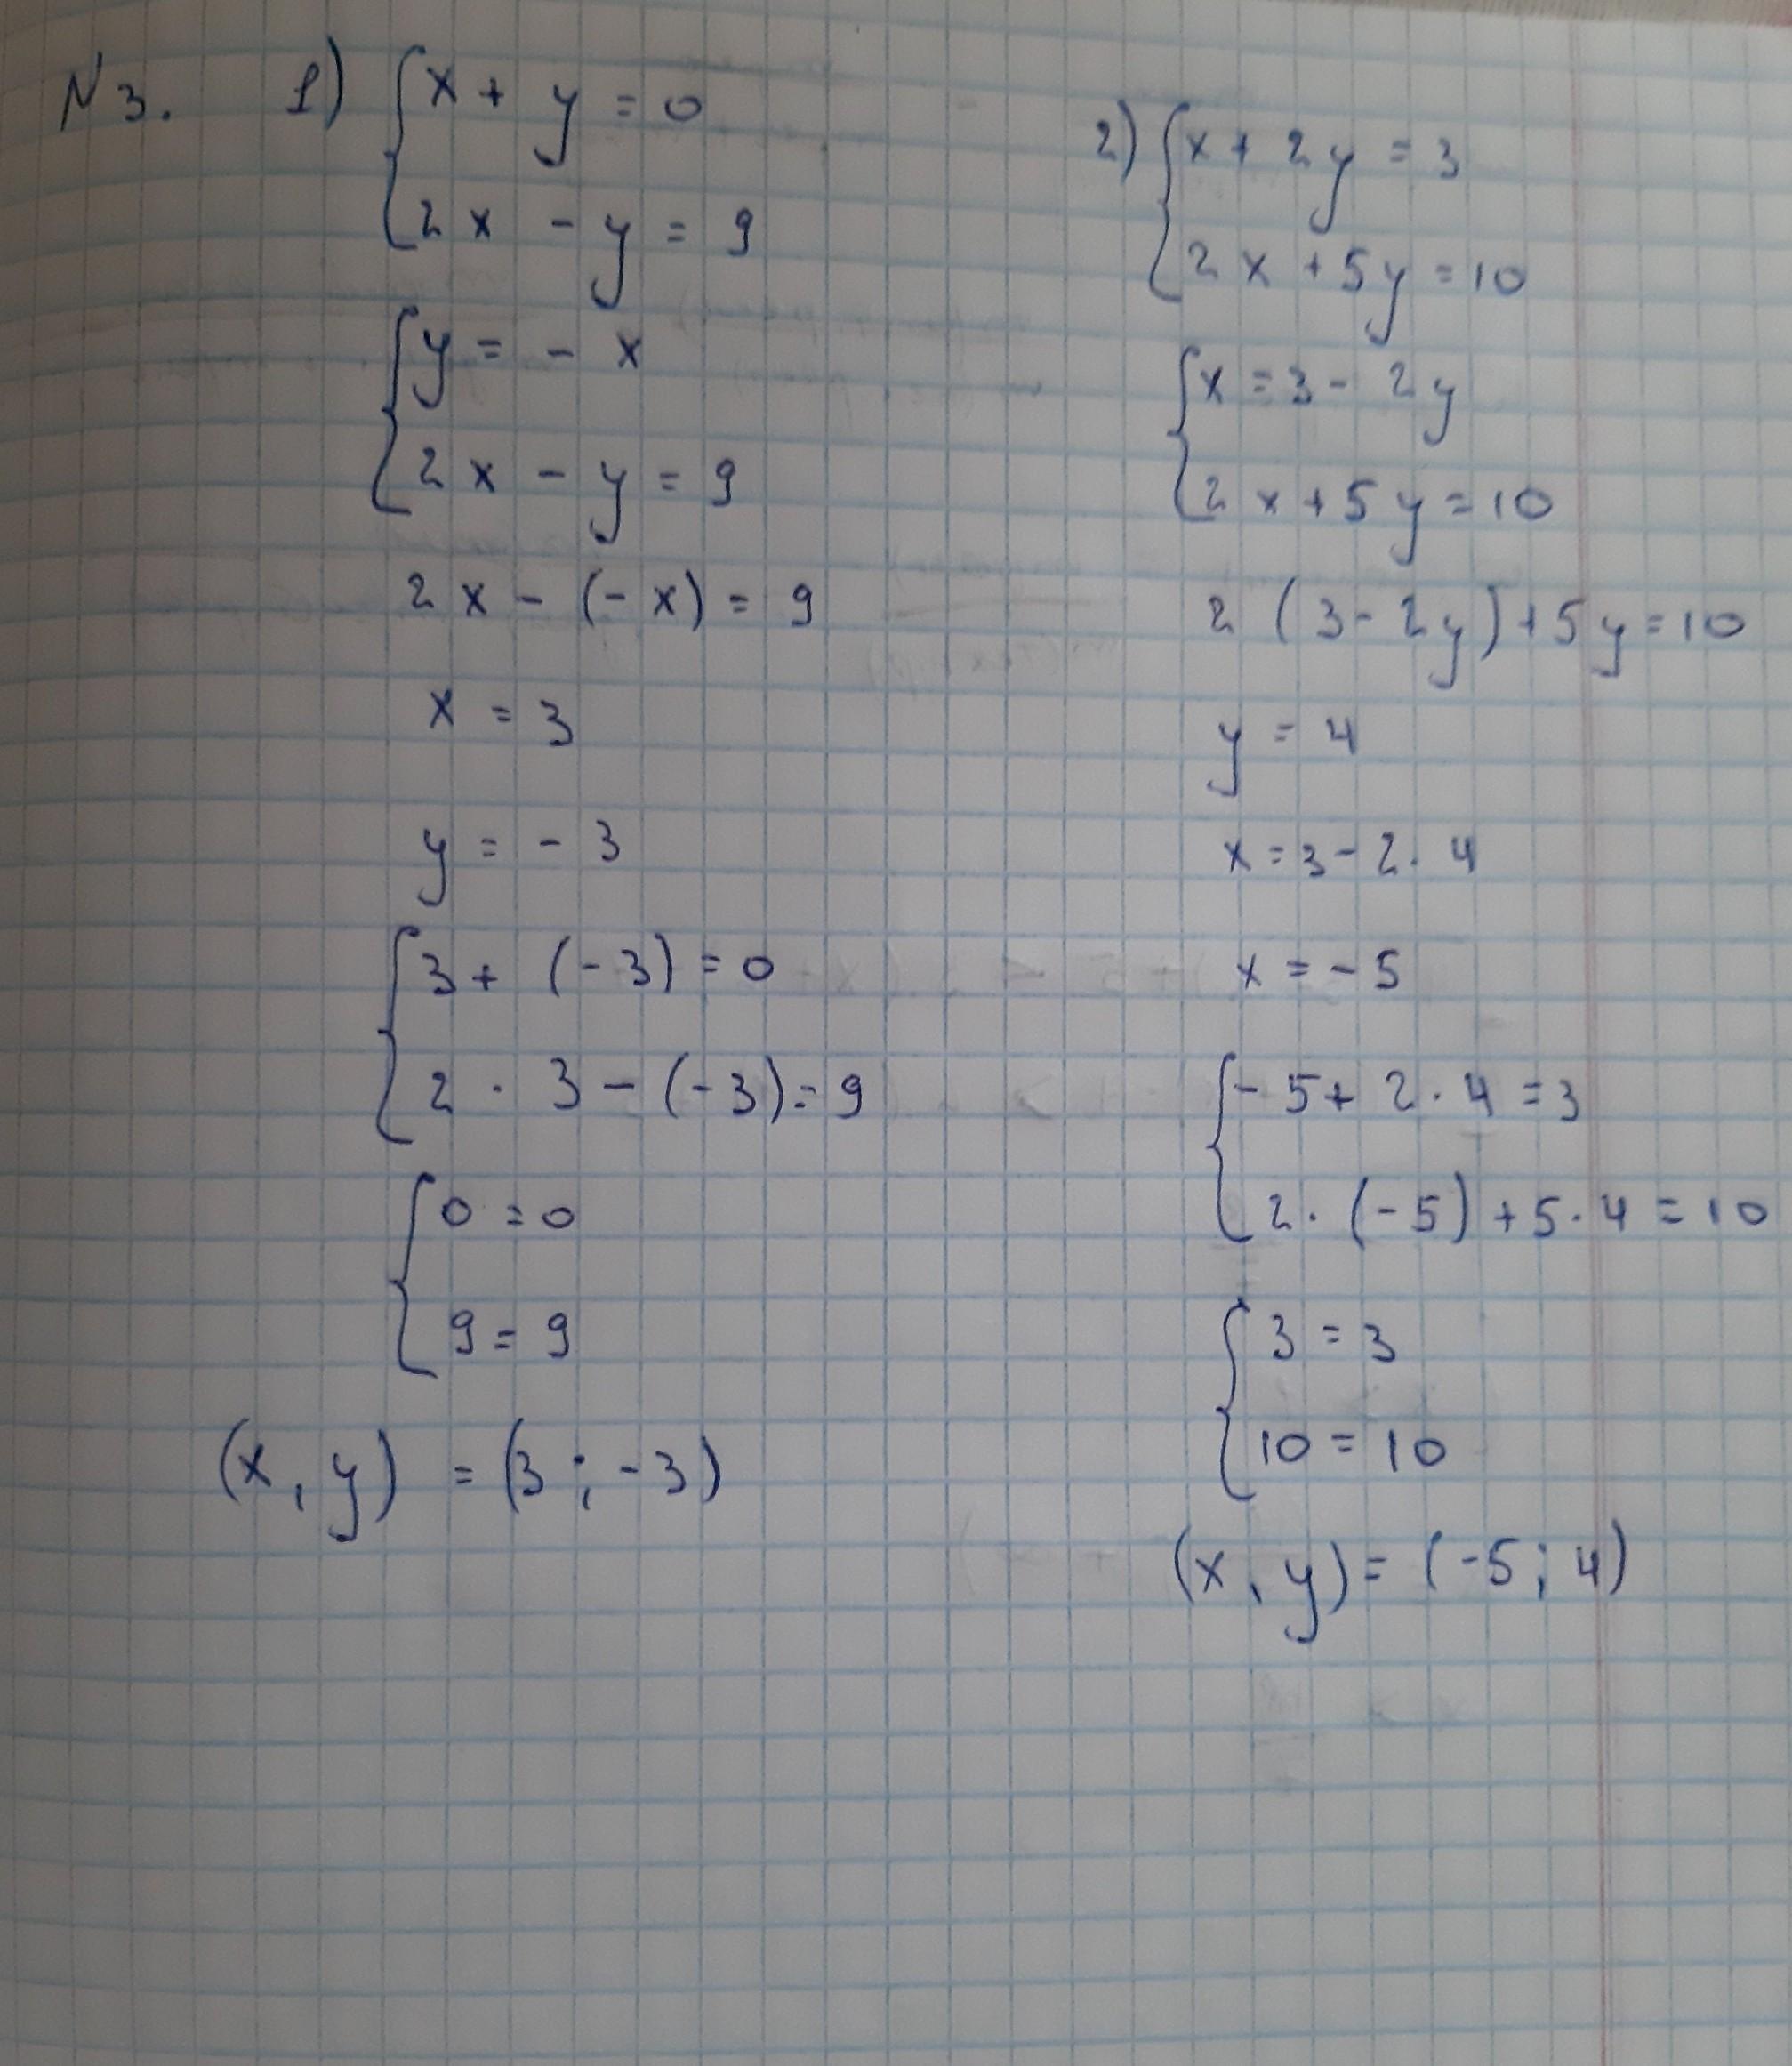 N 3. 1) { x + y = 0
2x - y = 9
{ y = - x
2x - y = 9
2x - (-x) = 9
x = 3
y = - 3
{ 3 + (-3) = 0
2 · 3 - (-3) = 9
{ 0 = 0
9 = 9
(x, y) = (3; -3)
2) { x + 2y = 3
2x + 5y = 10
{ x = 3 - 2y
2x + 5y = 10
2 (3 - 2y) + 5y = 10
y = 4
x = 3 - 2 · 4
x = - 5
{ - 5 + 2 · 4 = 3
2 · (-5) + 5 · 4 = 10
{ 3 = 3
10 = 10
(x, y) = (-5; 4)